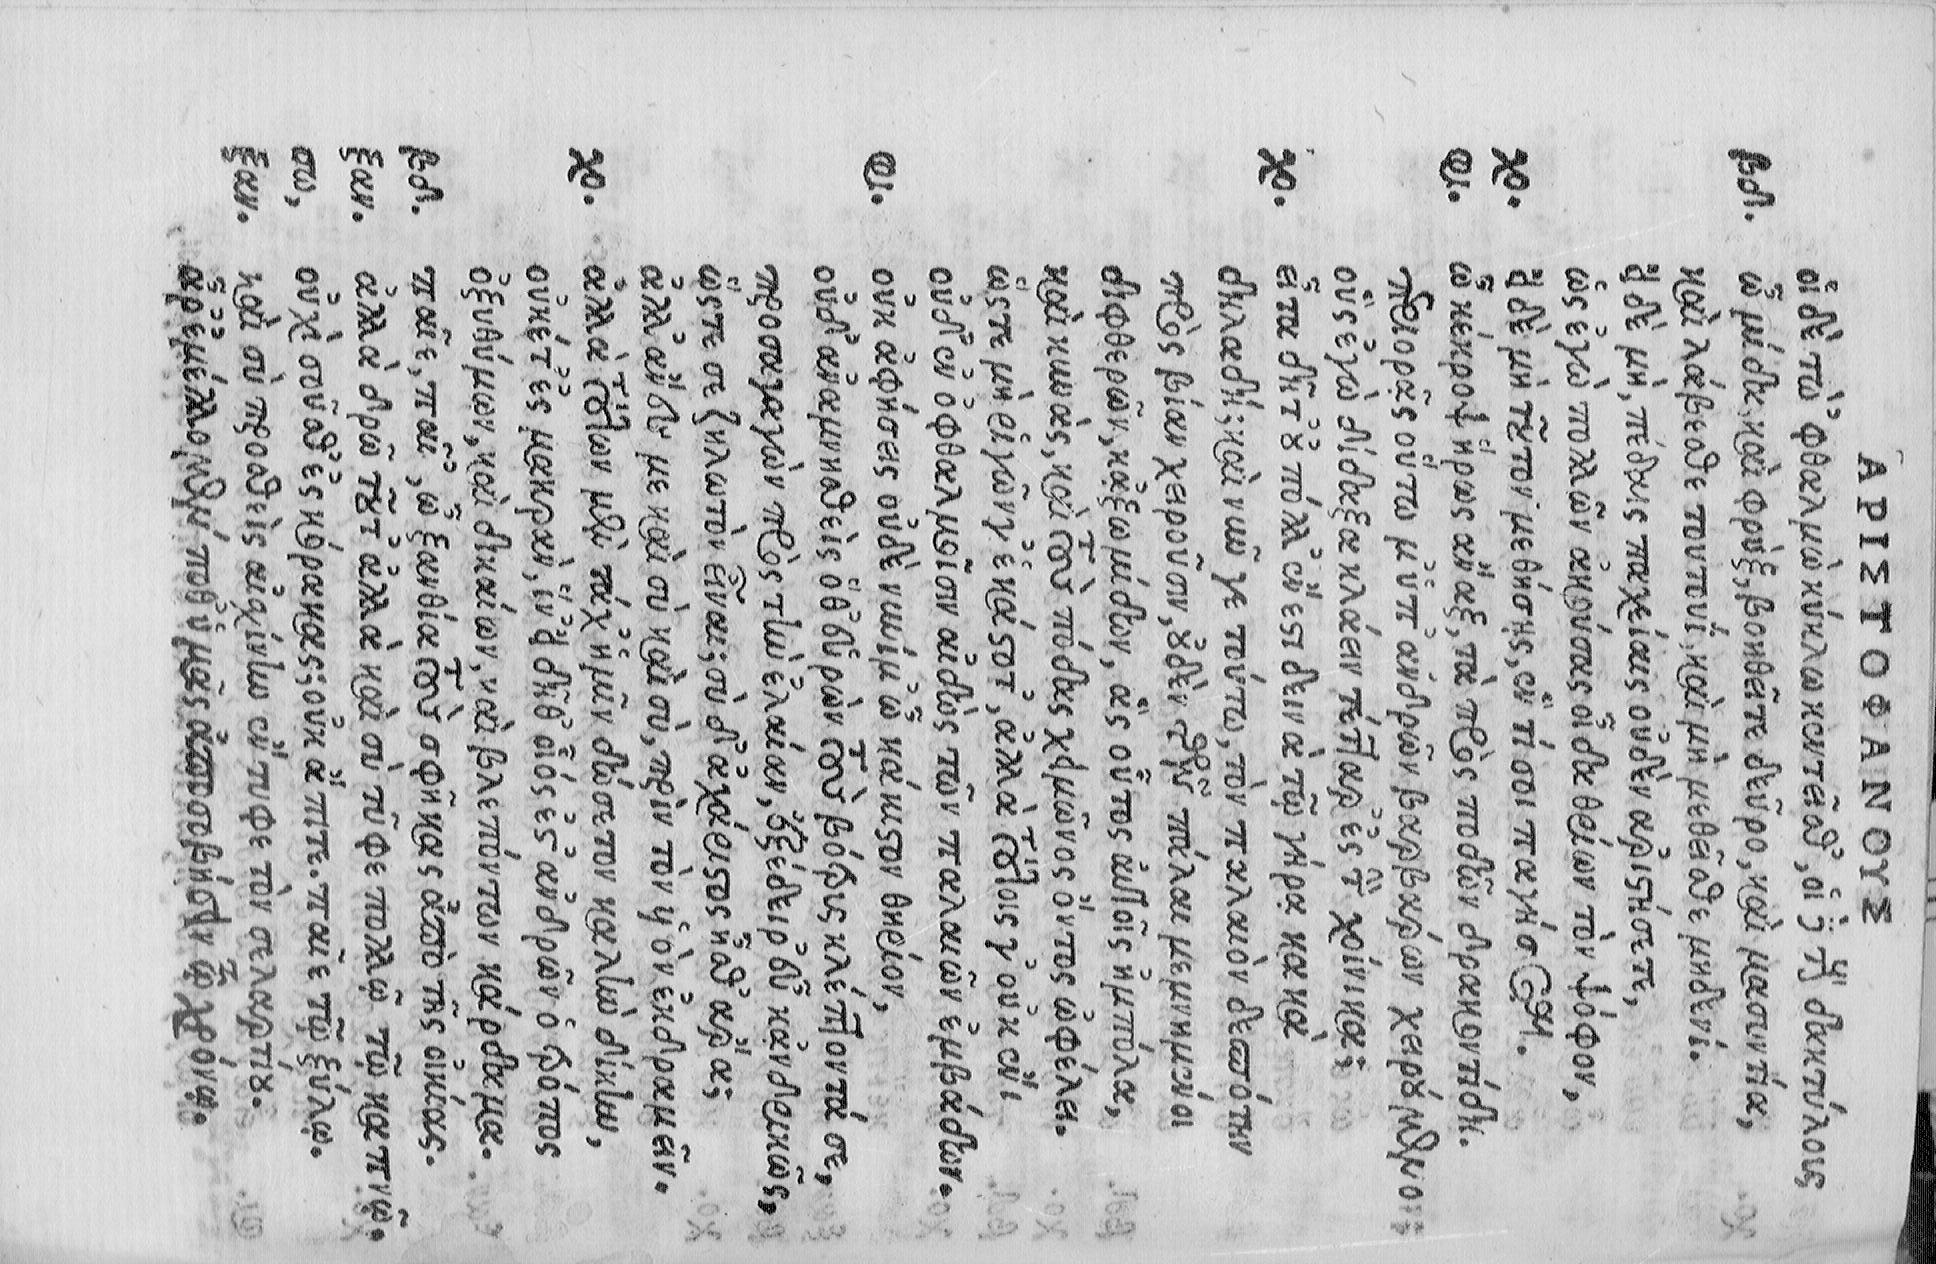 ἈΡΙΣΤΟΦΑΝΟΥΣ
οἱ δὲ τὼ ὀφθαλμὼ κύκλω κεντεῖσθ', οἱ δὲ τοὺς δακτύλους
βδε. ὦ μίδα, καὶ φρὺξ, βοηθεῖτε δεῦρο, καὶ μασυντία,
καὶ λάβεσθε τουτουῒ, καὶ μὴ μεθεῖσθε μηδενί.
εἰ δὲ μὴ, πέδαις παχείαις οὐδὲν ἀριστήσετε,
ὡς ἐγὼ πολλῶν ἀκούσας οἶδα θείων τὸν ψόφον,
χο. εἰ δὲ μὴ τοῦτον μεθήσης, ἔν τί σοι παγήσεται.
φι. ὦ κέκροψ ἥρως ἄναξ, τὰ πρὸς ποδῶν δρακοντίδη.
περιορᾷς οὕτω μ' ὑπ' ἀνδρῶν βαρβάρων χειρούμενον;
οὓς ἐγὼ δίδαξα κλάειν τέτταρ' ἐς τ̀ χοίνικα;
χο. εἶτα δῆτ' οὐ πόλλ' ἔνεστι δεινὰ τῷ γήρᾳ κακά
δηλαδή; καὶ νῦν γε τούτω, τὸν παλαιὸν δεσπότην
πρὸς βίαν χειροῦσιν, οὐδὲν τῶν πάλαι μεμνημένοι
διφθερῶν, κἀξωμίδων, ἃς οὗτος αὐτοῖς ἠμπόλα,
καὶ κυνᾶς, καὶ τοὺς πόδας χειμῶνος ὄντος ὠφέλει.
ὥστε μὴ ῥιγῶν γ' ἑκάστοτ', ἀλλὰ τούτοις γ' οὐκ ἔνι
οὐδ' ἐν ὀφθαλμοῖσιν αἰδὼς τῶν παλαιῶν ἐμβάδων.
φι. οὐκ ἀφήσεις οὐδὲ νυνί μ' ὦ κάκιστον θηρίον,
οὐδ' ἀναμνησθεὶς ὅθ' εὑρὼν τοὺς βότρυς κλέπτοντά σε,
προσαγαγὼν πρὸς τὴν ἐλάαν, ἐξέδειρ' εὖ κἀνδρικῶς,
ὥστε σε ζηλωτὸν εἶναι; σὺ δ' ἀχάριστος ἦσθ' ἄρα;
ἀλλ' ἄνες με καὶ σὺ καὶ σὺ, πρὶν τὸν υἱὸν ἐκδραμεῖν.
χο. ἀλλὰ τούτων μὲν τάχ' ἡμῖν δώσετον καλὴν δίκην,
οὐκέτ' ἐς μακρὰν, ἵν' εἰδῆθ' οἷός ἐστ' ἀνδρῶν ὁ τρόπος
ὀξυθύμων, καὶ δικαίων, καὶ βλεπόντων κάρδαμα.
βδε. παῖε, παῖ', ὦ ξανθία τοὺς σφῆκας ἀπὸ τῆς οἰκίας.
ξαν. ἀλλὰ δρῶ τοῦτ' ἀλλὰ καὶ σὺ τῦφε πολλῷ τῷ καπνῷ.
σω, οὐχὶ σοῦσθ' ἐς κόρακας; οὐκ ἄπιτε. παῖε τῷ ξύλῳ.
ξαν. καὶ σὺ προσθεὶς αἰσχίνην ἔντυφε τὸν σελαρτίου.
ἆρ' ἐμέλλομέν ποθ' ὑμᾶς ἀποσοβήσειν τῷ χρόνῳ.